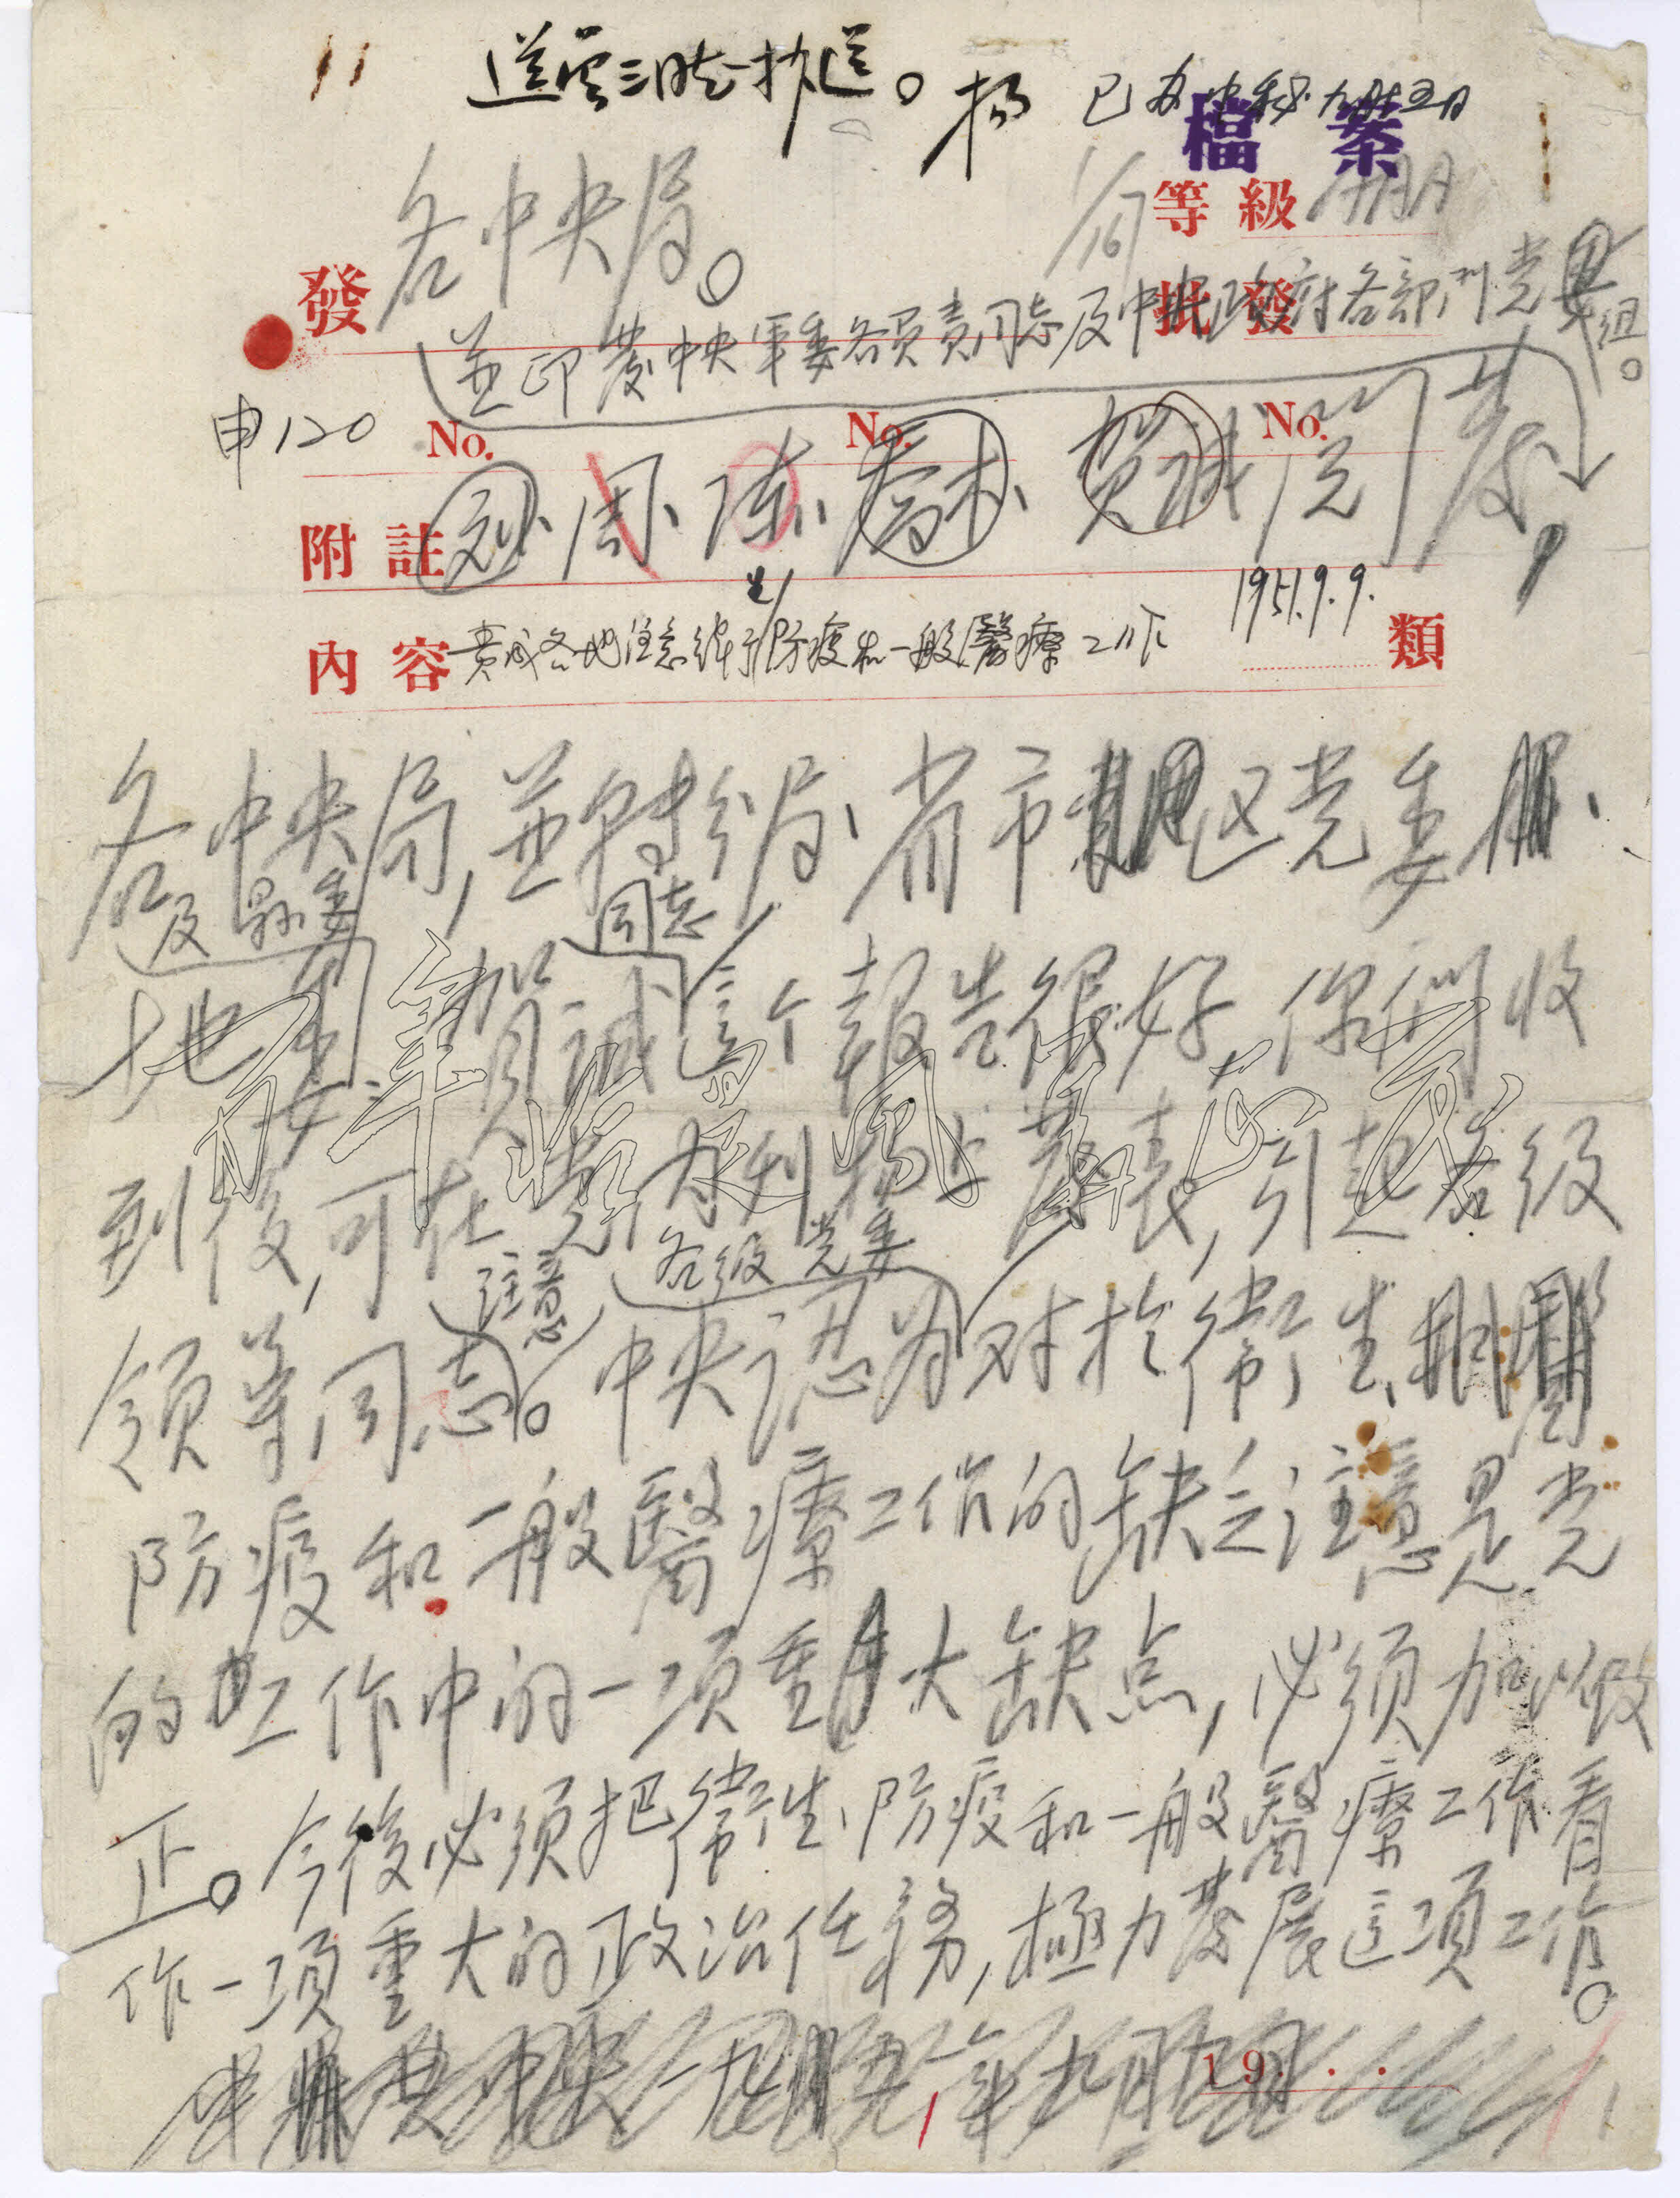 檔案
已办
等級
各中央局。
發
批發
並印發中央軍委各負責同志及中央政府各部門党組。
申120
No. No. No.
刘、周、陈、喬木、賀誠閱
發
附註
1951.9.9.
內容 責成各地注意衛生防疫和一般醫療工作
類
各中央局,並轉分局、省市区党委、
及县委
同志
地委:賀誠這个報告很好,你們收
到後,可在党内刊物上發表,引起各級
注意
各级党委
領導同志。中央認为对於衛生、
防疫和一般醫療工作的缺乏注意是党
的工作中的一項重大缺点,必须加以改
正。今後必须把衛生、防疫和一般醫療工作看
作一項重大的政治任務,極力發展這項工作。
中央
一九五一年九月九日
19 . . .